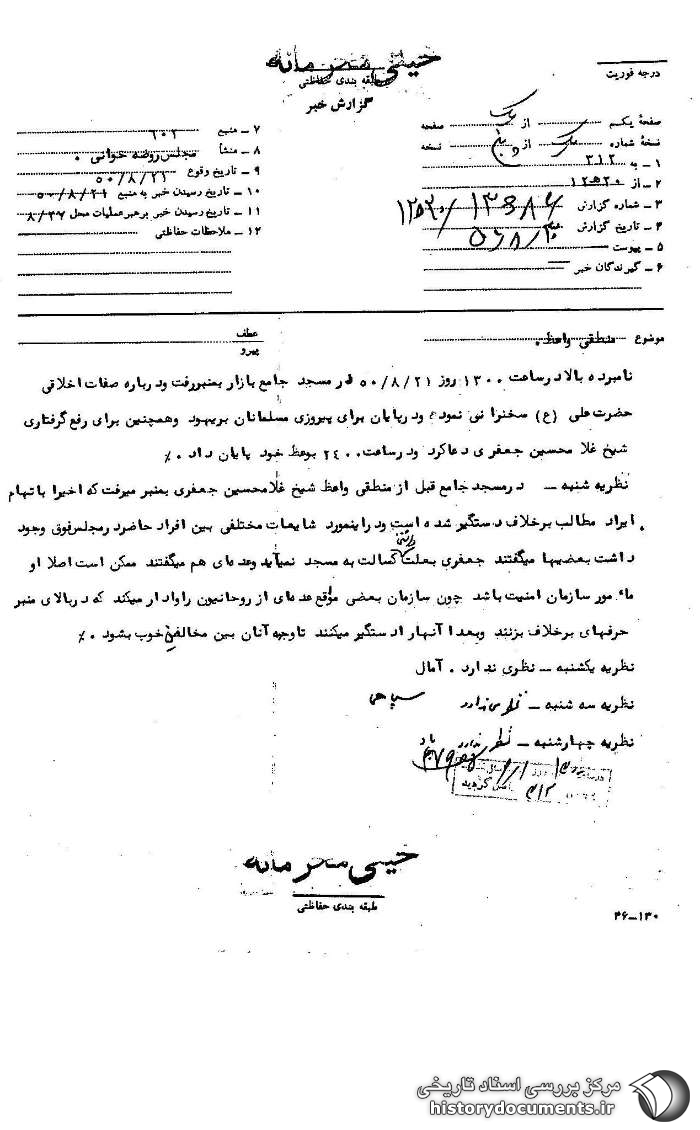 خیلی محرمانه
طبقه بندی حفاظتی
گزارش خبر
درجه فوریت
صفحه یکم از یک صفحه
نسخه شماره یک از پنج نسخه
۱ ـ به ۳۱۲
۲ ـ از ۱۲ه۲۰
۳ ـ شماره گزارش
۴ ـ تاریخ گزارش
۵ ـ پیوست
۶ ـ گیرندگان خبر
۷ ـ منبع
۸ ـ منشأ مجلس روضه خوانی .
۹ ـ تاریخ وقوع ۵۰/۸/۲۱
۱۰ ـ تاریخ رسیدن خبر به منبع ۵۰/۸/۲۱
۱۱ ـ تاریخ رسیدن خبر برهبر عملیات محل
۱۲ ـ ملاحظات حفاظتی
موضوع منطقی واعظ .
عطف
پیرو
نامبرده بالا در ساعت ۱۳۰۰ روز ۵۰/۸/۲۱ در مسجد جامع بازار بمنبر رفت و درباره صفات اخلاقی
حضرت علی (ع) سخنرانی نمود و در پایان برای پیروزی مسلمانان بر یهود و همچنین برای رفع گرفتاری
شیخ غلامحسین جعفری دعا کرد و در ساعت ۲٤۰۰ بوعظ خود پایان داد .٪
نظریه شنبه ـ در مسجد جامع قبل از منطقی واعظ شیخ غلامحسین جعفری بمنبر میرفت که اخیرا باتهام
ایراد مطالب برخلاف دستگیر شده است و در اینمورد شایعات مختلفی بین افراد حاضر در مجلس فوق وجود
داشت بعضیها میگفتند جعفری بعلت داشتن کسالت به مسجد نمیآید و عده ای هم میگفتند ممکن است اصلا او
مأمور سازمان امنیت باشد چون سازمان بعضی موقع عده ای از روحانیون را وادار میکند که در بالای منبر
حرفهای برخلاف بزنند و بعدا آنها را دستگیر میکنند تا وجهه آنان بین مخالفین خوب بشود .٪
نظریه یکشنبه ـ نظری ندارد . آمال
نظریه سه شنبه ـ نظری ندارد سپاهی
نظریه چهارشنبه ـ نظری ندارد
خیلی محرمانه
طبقه بندی حفاظتی
۳۶-۱۳۰
مرکز بررسی اسناد تاریخی
historydocuments.ir